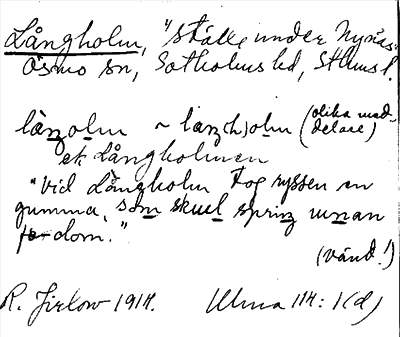 Långholm, "ställe under Nynäs"
Ösmo sn, Sotholms hd, Sthms l.
làŋolm ~ làŋ(h)olm (olika med-
delare)
ek Långholmen
"Vid Långholm tog ryssen en
gumma, som skuel spriŋ unan
för dom."
(vänd!)
R. Jirlow 1917. Ulma 114: 1(d)